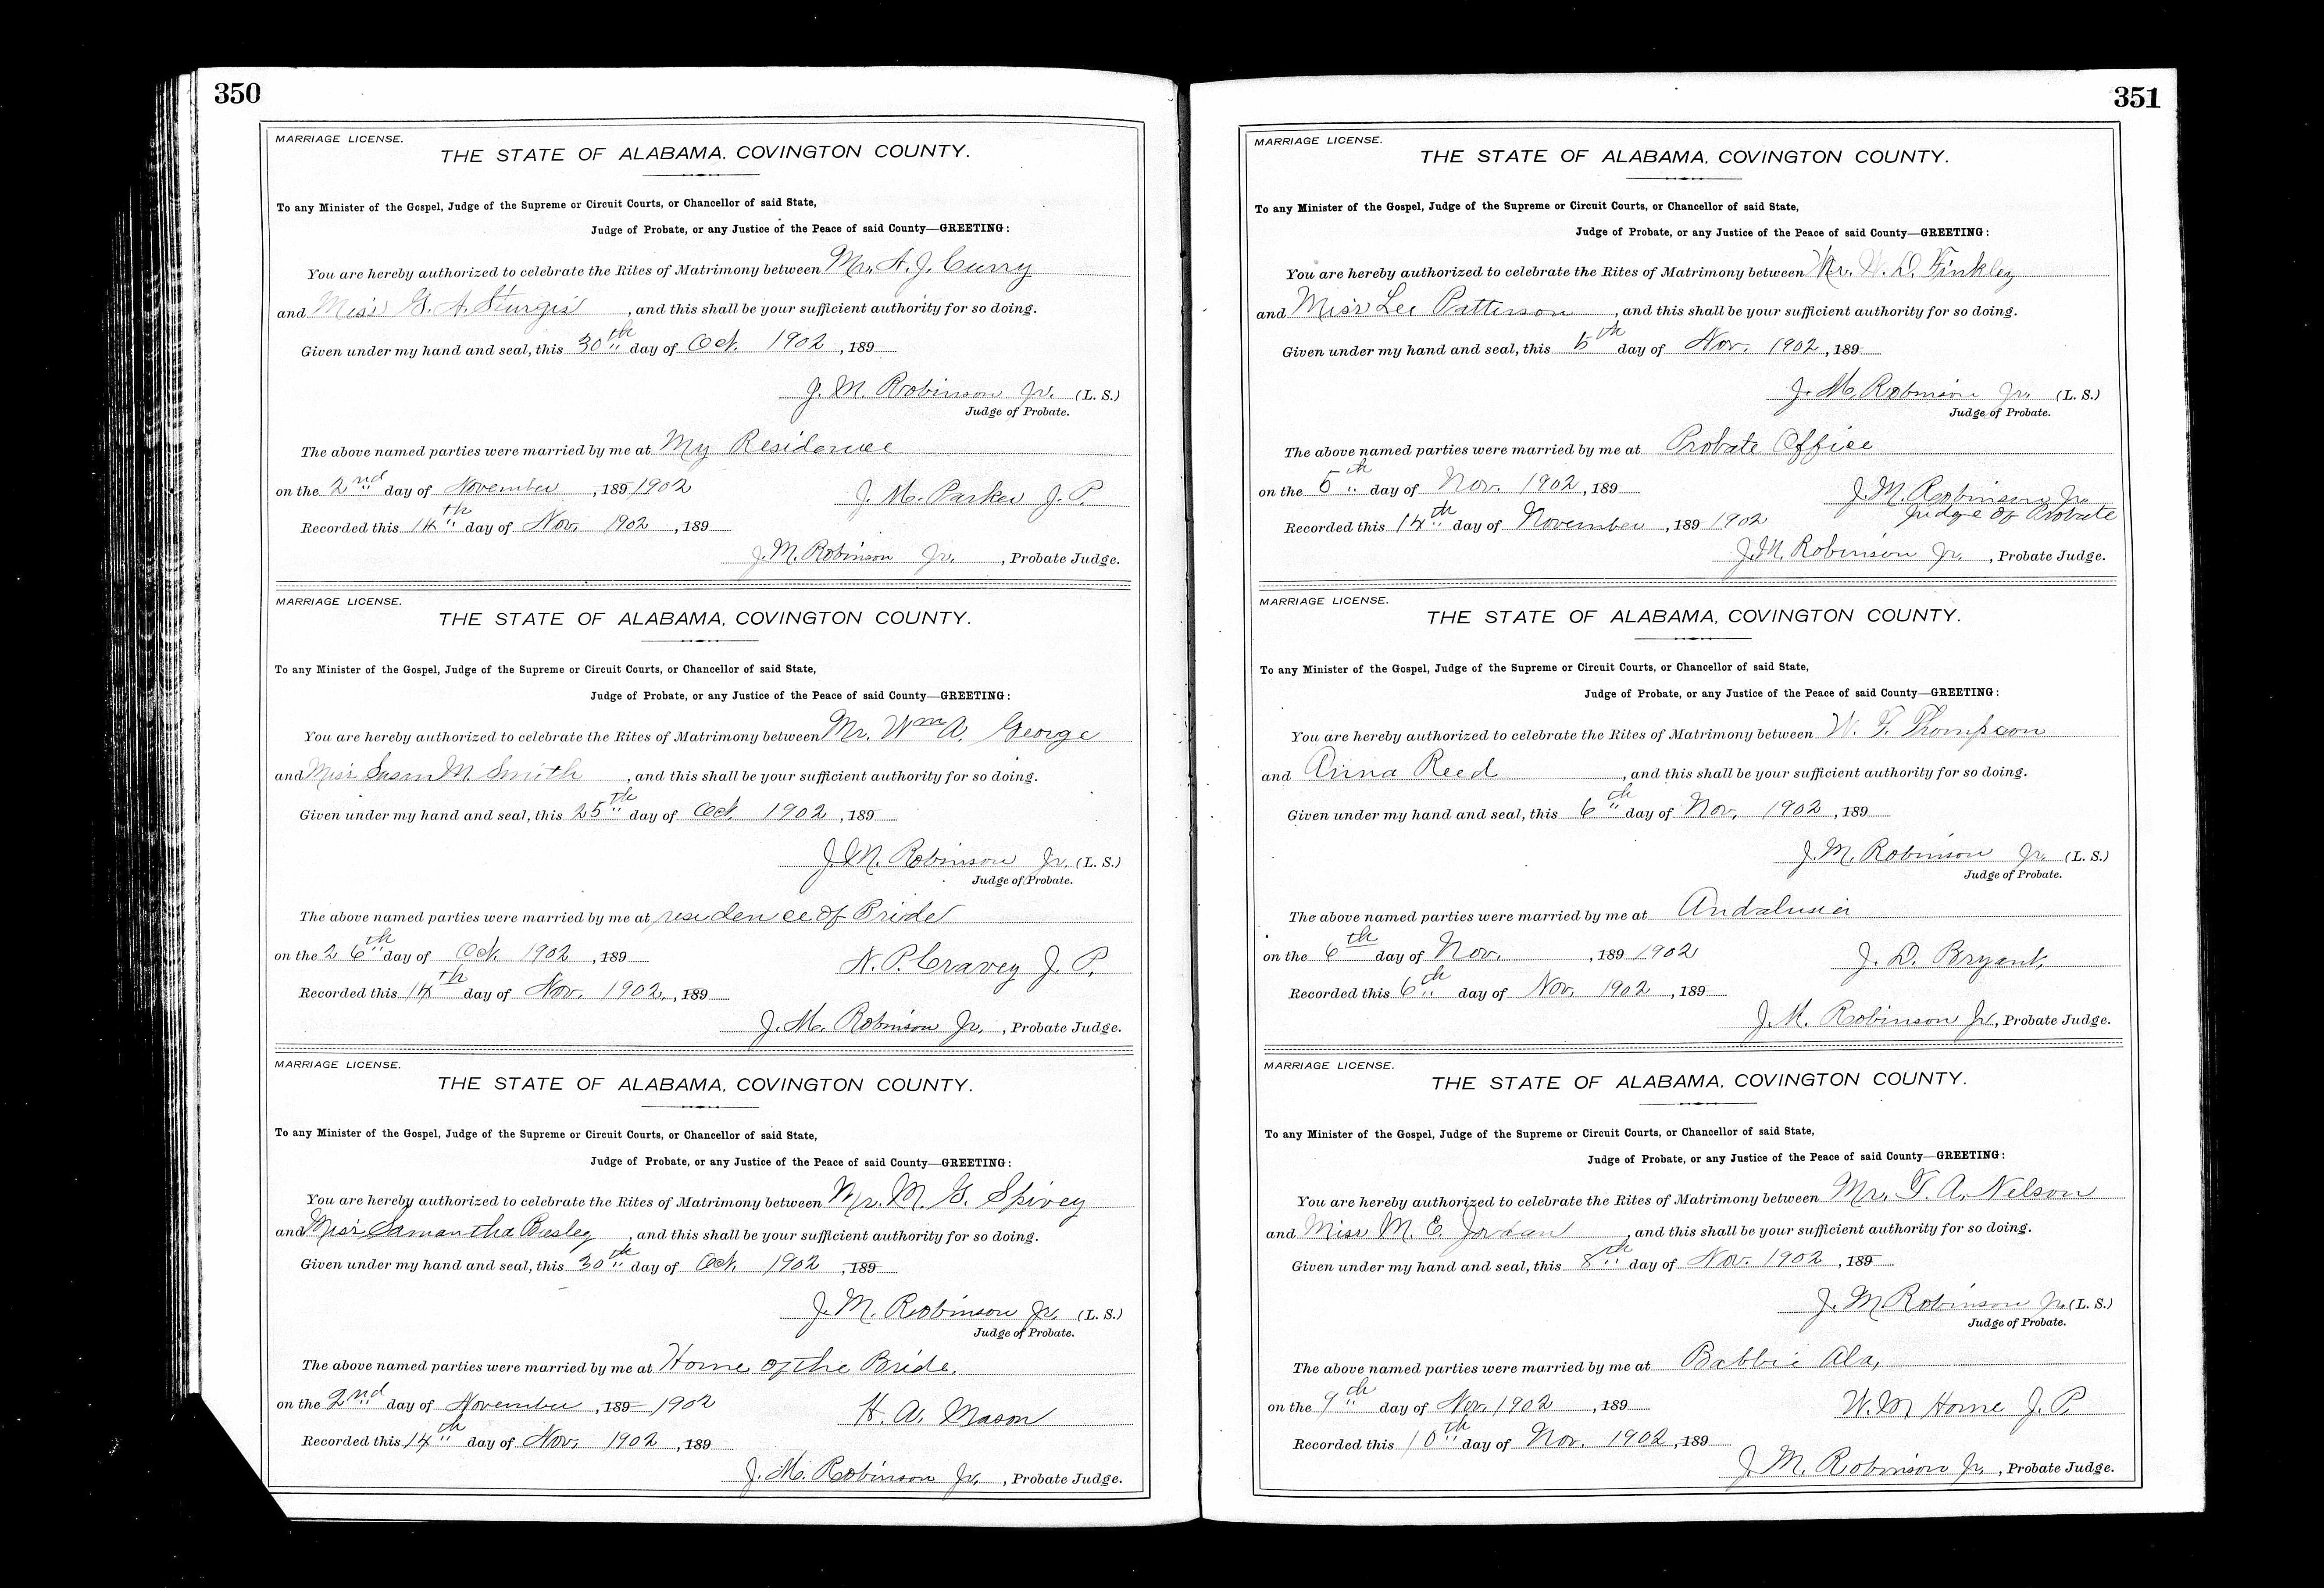 350
MARRIAGE LICENSE.
THE STATE OF ALABAMA, COVINGTON COUNTY.
To any Minister of the Gospel, Judge of the Supreme or Circuit Courts, or Chancellor of said State,
Judge of Probate, or any Justice of the Peace of said County—GREETING:
You are hereby authorized to celebrate the Rites of Matrimony between Mr. A. J. Curry
and Miss G. A. Sturgis, and this shall be your sufficient authority for so doing.
Given under my hand and seal, this 30th day of Oct. 1902, 189
J. M. Robinson Jr. (L. S.)
Judge of Probate.
The above named parties were married by me at My Residence
on the 2nd day of November, 189 1902 J. M. Parker J. P.
Recorded this 14th day of Nov. 1902, 189
J. M. Robinson Jr., Probate Judge.
MARRIAGE LICENSE.
THE STATE OF ALABAMA, COVINGTON COUNTY.
To any Minister of the Gospel, Judge of the Supreme or Circuit Courts, or Chancellor of said State,
Judge of Probate, or any Justice of the Peace of said County—GREETING:
You are hereby authorized to celebrate the Rites of Matrimony between Mr. Wm A. George
and Miss Susan M. Smith, and this shall be your sufficient authority for so doing.
Given under my hand and seal, this 25th day of Oct. 1902, 189
J. M. Robinson Jr. (L. S.)
Judge of Probate.
The above named parties were married by me at residence of Bride
on the 26th day of Oct. 1902, 189 N. P. Cravey J. P.
Recorded this 14th day of Nov. 1902, 189
J. M. Robinson Jr., Probate Judge.
MARRIAGE LICENSE.
THE STATE OF ALABAMA, COVINGTON COUNTY.
To any Minister of the Gospel, Judge of the Supreme or Circuit Courts, or Chancellor of said State,
Judge of Probate, or any Justice of the Peace of said County—GREETING:
You are hereby authorized to celebrate the Rites of Matrimony between Mr. M. G. Spivey
and Miss Samantha Basley, and this shall be your sufficient authority for so doing.
Given under my hand and seal, this 30th day of Oct. 1902, 189
J. M. Robinson Jr. (L. S.)
Judge of Probate.
The above named parties were married by me at Home of the Bride.
on the 2nd day of November, 189 1902 H. A. Mason
Recorded this 14th day of Nov. 1902, 189
J. M. Robinson Jr., Probate Judge.
351
MARRIAGE LICENSE.
THE STATE OF ALABAMA, COVINGTON COUNTY.
To any Minister of the Gospel, Judge of the Supreme or Circuit Courts, or Chancellor of said State,
Judge of Probate, or any Justice of the Peace of said County—GREETING:
You are hereby authorized to celebrate the Rites of Matrimony between Mr. D. Finkley
and Miss Lee Patterson, and this shall be your sufficient authority for so doing.
Given under my hand and seal, this 5th day of Nov. 1902, 189
J. M. Robinson Jr. (L. S.)
Judge of Probate.
The above named parties were married by me at Probate Office
on the 5th day of Nov. 1902, 189 J. M. Robinson Jr.
Judge of Probate
Recorded this 14th day of November, 189 1902
J. M. Robinson Jr., Probate Judge.
MARRIAGE LICENSE.
THE STATE OF ALABAMA, COVINGTON COUNTY.
To any Minister of the Gospel, Judge of the Supreme or Circuit Courts, or Chancellor of said State,
Judge of Probate, or any Justice of the Peace of said County—GREETING:
You are hereby authorized to celebrate the Rites of Matrimony between W. F. Thompson
and Anna Reed, and this shall be your sufficient authority for so doing.
Given under my hand and seal, this 6th day of Nov. 1902, 189
J. M. Robinson Jr. (L. S.)
Judge of Probate.
The above named parties were married by me at Andalusia
on the 6th day of Nov., 189 1902 J. D. Bryant,
Recorded this 6th day of Nov. 1902, 189
J. M. Robinson Jr., Probate Judge.
MARRIAGE LICENSE.
THE STATE OF ALABAMA, COVINGTON COUNTY.
To any Minister of the Gospel, Judge of the Supreme or Circuit Courts, or Chancellor of said State,
Judge of Probate, or any Justice of the Peace of said County—GREETING:
You are hereby authorized to celebrate the Rites of Matrimony between Mr. T. A. Nelson
and Miss M. E. Jordan, and this shall be your sufficient authority for so doing.
Given under my hand and seal, this 8th day of Nov. 1902, 189
J. M. Robinson Jr. (L. S.)
Judge of Probate.
The above named parties were married by me at Babbie Ala,
on the 9th day of Nov. 1902, 189 W. M Horne J. P.
Recorded this 10th day of Nov. 1902, 189
J. M. Robinson Jr., Probate Judge.